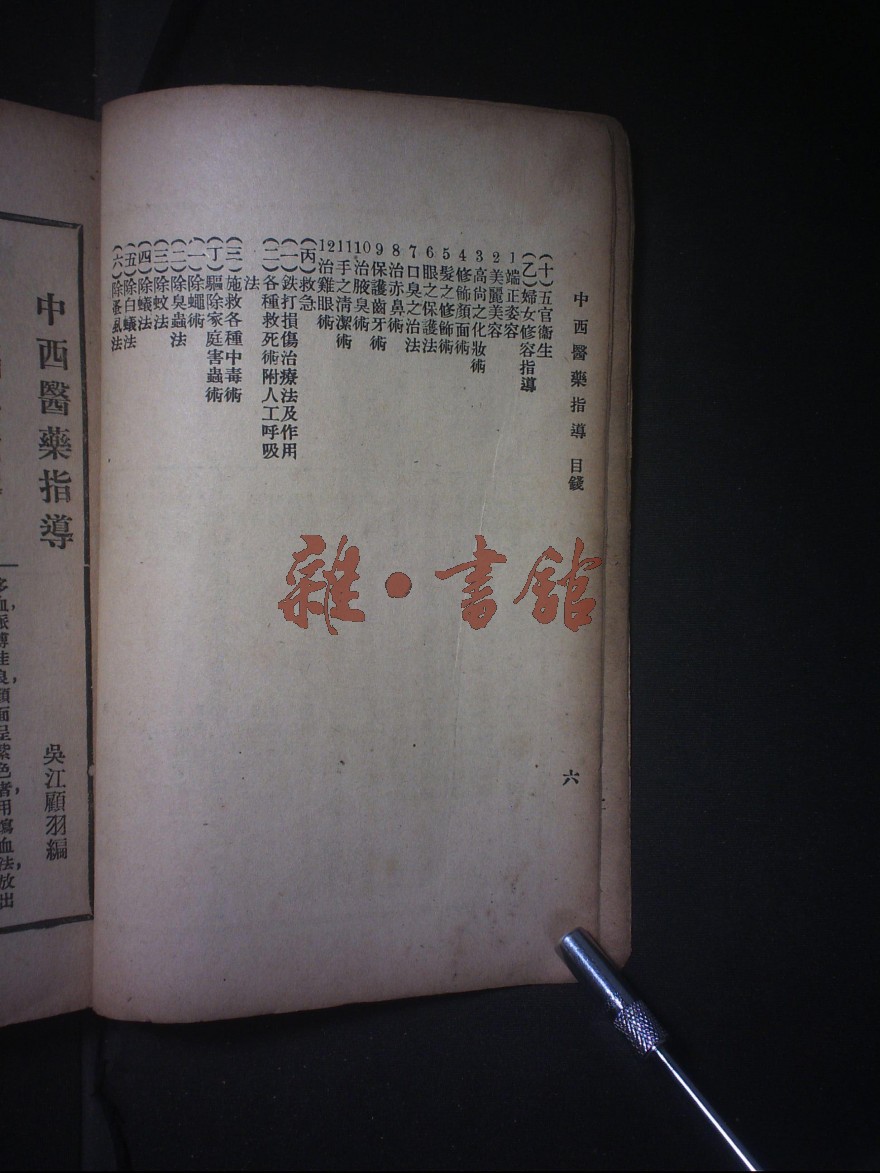 中西醫藥指導 目錢
六
(十)五官衞生
(乙)婦女修容指導
1端正姿容
2美麗美容
3高尙之化妝術
4修飾顏面術
5髮之修飾術
6眼之保護法
7口臭之治法
8治赤鼻術
9保護齒牙術
10治腋臭術
11手之淸潔術
12治雞眼術
(丙)救急
(一)鉄打損傷治療法及作用
(二)各種救死術附人工呼吸
法
(三)施救各種中毒術
(丁)驅除家庭害蟲術
(一)除蠅術
(二)除臭蟲法
(三)除蚊法
(四)除蟻法
(五)除白蟻法
(六)除蚤虱法
雜·書館
中西醫藥指導
吳江顧羽編
血，
良，顏面呈紫色者，用瀉血法，放出